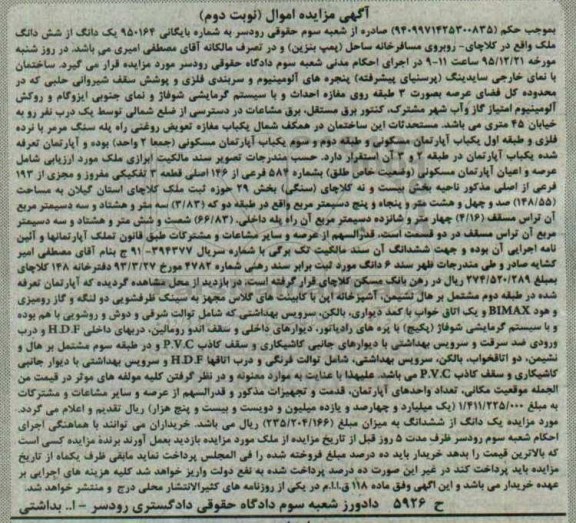 آگهی مزایده اموال (نوبت دوم)
بموجب حکم (۹۴۰۹۹۷۱۴۲۵۳۰۰۸۳۵) صادره از شعبه سوم حقوقی رودسر به شماره بایگانی ۹۵۰۱۶۴ یک دانگ از شش دانگ
ملک واقع در کلاچای- روبروی مسافرخانه ساحل (پمپ بنزین) و در تصرف مالکانه آقای مصطفی امیری می باشد. در روز شنبه
مورخه ۹۵/۱۲/۲۱ ساعت ۱۱-۹ در اجرای احکام مدنی شعبه سوم دادگاه حقوقی رودسر مورد مزایده قرار می گیرد. ساختمان
با نمای خارجی سایدینگ (پرسنیای پیشرفته) پنجره های آلومینیوم و سربندی فلزی و پوشش سقف شیروانی حلبی که در
محدوده کل فضای عرصه بصورت ۳ طبقه روی مغازه احداث و با سیستم گرمایشی شوفاژ و نمای جنوبی ایزوگام و روکش
آلومینیوم امتیاز گاز وآب شهر مشترک، کنتور برق مستقل، برق مشاعات در دسترسی از ضلع شمالی توسط یک درب نفر رو به
خیابان ۴۵ متری می باشد. مستحدثات این ساختمان در همکف شمال یکباب مغازه تعویض روغنی راه پله سنگ مرمر با نرده
فلزی و طبقه اول یکباب آپارتمان مسکونی و طبقه دوم و سوم یکباب آپارتمان مسکونی (جمعا ۲ واحد) بوده و آپارتمان تعرفه
شده یکباب آپارتمان در طبقه ۲ و ۳ آن استقرار دارد. حسب مندرجات تصویر سند مالکیت ابرازی ملک مورد ارزیابی شامل
عرصه و اعیان آپارتمان مسکونی (وضعیت خاص طلق) بشماره ۵۸۴ فرعی از ۱۴۶ اصلی قطعه ۳ تفکیکی مفروز و مجزی از ۱۹۳
فرعی از اصلی مذکور ناحیه بخش بیست و نه کلاچای (سنگی) بخش ۲۹ حوزه ثبت ملک کلاچای استان گیلان به مساحت
(۱۴۸/۵۵) صد و چهل و هشت متر و پنجاه و پنج دسیمتر مربع واقع در طبقه دو که (۳/۸۳) سه متر و هشتاد و سه دسیمتر مربع
آن تراس مسقف (۴/۱۶) چهار متر و شانزده دسیمتر مربع آن راه پله داخلی. (۶۶/۸۳) شصت و شش متر و هشتاد و سه دسیمتر
مربع آن تراس مسقف در دو قسمت است. قدرالسهم از عرصه و سایر مشاعات و مشترکات طبق قانون تملک آپارتمانها و آئین
نامه اجرایی آن بوده و جهت ششدانگ آن سند مالکیت تک برگی با شماره سریال ۳۹۴۳۷۷- ۹۱ ج بنام آقای مصطفی امیر
کشایه صادر و طی مندرجات ظهر سند ۶ دانگ مورد ثبت برابر سند رهنی شماره ۴۷۸۲ مورخ ۹۳/۳/۲۷ دفترخانه ۱۴۸ کلاچای
بمبلغ ۳۷۴/۵۲۰/۲۸۹ ریال در رهن بانک مسکن کلاچای قرار گرفته است. در بازدید از محل مشاهده گردیده که آپارتمان تعرفه
شده در طبقه دوم مشتمل بر هال نشیمن، آشپزخانه اپن با کابینت های گلاس مجهز به سینک ظرفشویی دو لنگه و گاز رومیزی
و هود BIMAX و یک اتاق خواب با کمد دیواری، بالکن، سرویس بهداشتی که شامل توالت شرقی و دوش و روشویی با هم بوده
و با سیستم گرمایشی شوفاژ (پکیج) با پره های رادیاتور، دیوارهای داخلی و سقف اندو رومالین، دربهای داخلی H.D.F و درب
ورودی ضد سرقت و سرویس بهداشتی با دیوارهای جانبی کاشیکاری و سقف کاذب P.V.C و در طبقه سوم مشتمل بر هال و
نشیمن، دو اتاقخواب، بالکن، سرویس بهداشتی، شامل توالت فرنگی و درب اتاقها H.D.F و سرویس بهداشتی با دیوار جانبی
کاشیکاری و سقف کاذب P.V.C می باشد. علیهذا با عنایت به موارد معنونه و در نظر گرفتن کلیه مولفه های موثر در قیمت من
الجمله موقعیت مکانی، تعداد واحدهای آپارتمان، قدمت و تجهیزات مذکور و قدرالسهم از عرصه و سایر مشاعات و مشترکات
به مبلغ ۱/۴۱۱/۲۲۵/۰۰۰ (یک میلیارد و چهارصد و یازده میلیون و دویست و بیست و پنج هزار) ریال تقدیم و اعلام می گردد.
مورد مزایده یک دانگ از ششدانگ به میزان مبلغ (۲۳۵/۲۰۴/۱۶۶) ریال می باشد. خریداران می توانند با هماهنگی اجرای
احکام شعبه سوم رودسر ظرف مدت ۵ روز قبل از تاریخ مزایده از ملک مورد مزایده بازدید بعمل آورند برنده مزایده کسی است
که بالاترین قیمت را بدهد خریدار باید ده درصد مبلغ فروخته شده را فی المجلس پرداخت نماید مابقی ظرف یکماه از تاریخ
مزایده باید پرداخت کند در غیر این صورت ده درصد پرداخت شده به نفع دولت واریز خواهد شد کلیه هزینه های اجرایی بر
عهده خریدار می باشد و این آگهی وفق ماده ۱۱۸ ق.ا.ا.م در یکی از روزنامه های کثیرالانتشار محلی درج و منتشر خواهد شد.
ح ۵۹۲۶ دادورز شعبه سوم دادگاه حقوقی دادگستری رودسر - ا.. بداشتی